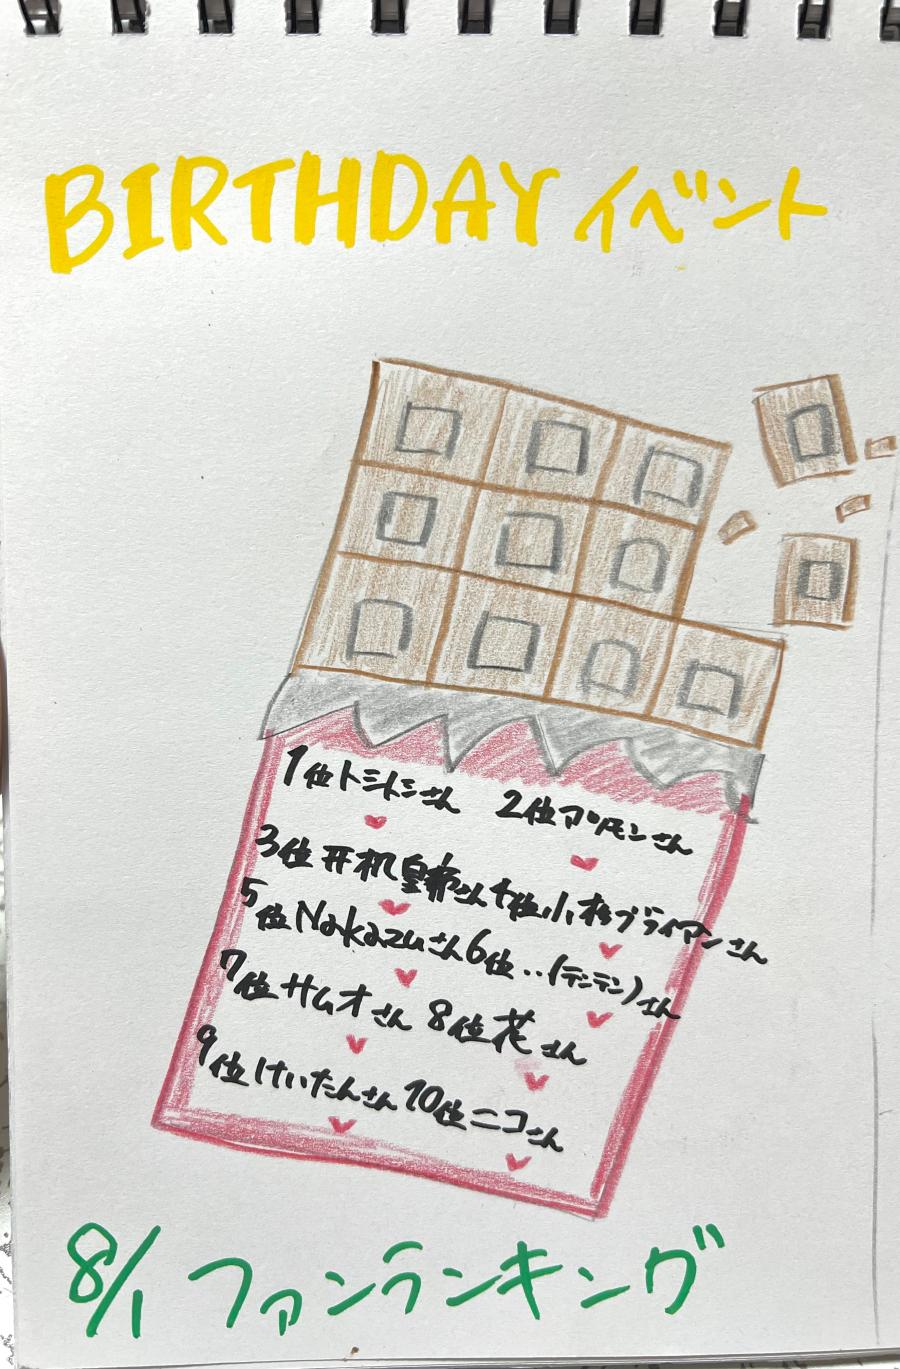 BIRTHDAY イベント
1位トシトシさん 2位アツモンさん
3位开机皇帝さん 4位小杉ブライアンさん
5位Nakazuさん 6位‥(テンテン)さん
7位サムオさん 8位花さん
9位けいたんさん 10位ニコさん
8/1 ファンランキング